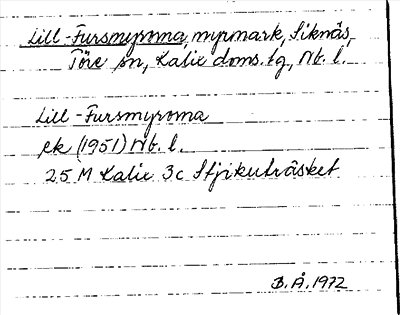 Lill-Fursmyrorna, myrmark, Siknäs,
Töre sn, Kalix doms.tg, Nb. l.
Lill-Fursmyrorna
ek (1951) Nb. l.
25 M Kalix 3c Stjikuträsket
B.Å. 1972